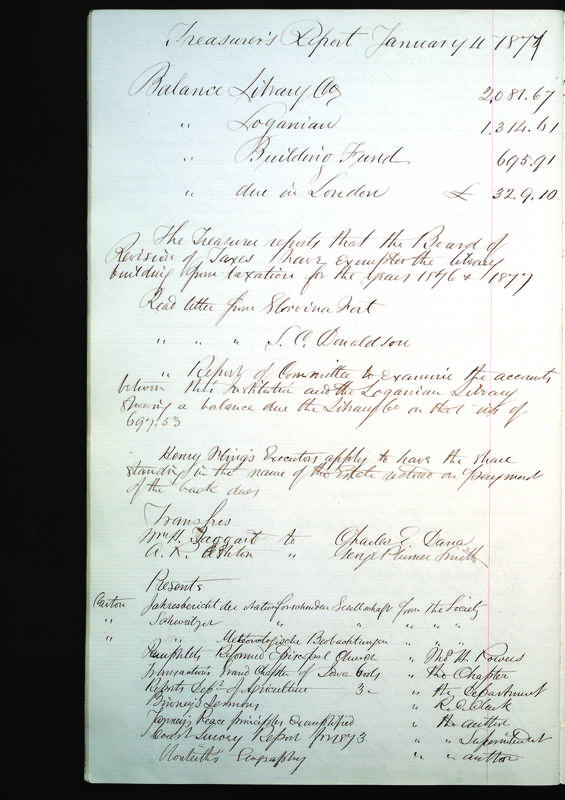 Treasurer's Report January 4 1877
Balance Library Co 2,081.67
" Loganian 1,314.61
" Building Fund 695.91
" due in London £ 32.9.10
The Treasurer reports that the Board of
Revision of Taxes have exempted the library
building from taxation for the years 1876 & 1877
Read letter from Glorvina Fort
" " " S. C. Donaldson
" Report of Committee to examine the accounts
between this institution and the Loganian Library
showing a balance due the Library Co on that a/c of
697.53
Henry King's Executors apply to have the share
standing in the name of the Estate restored on payment
of the back dues
Transfers
Wm H. Taggart to Charles E. Dana
A. R. Ashton " George Plumer Smith
Presents
Jahresbericht der Naturforschenden Gesellschaft from the Society
" Schweitzer " " " "
" " Meteorologische Beobachtungen " " "
Pamphlets Reformed Episcopal Church " Thos H. Powers
Transactions Grand Chapter of Iowa 6 vols " the Chapter
Reports Dept of Agriculture 3 " " the Department
Binney's Sermons " R. S. Clark
Peace principles Exemplified " the author
Coast Survey Report for 1873 " " Superintendent
Monteith's Geography " " author